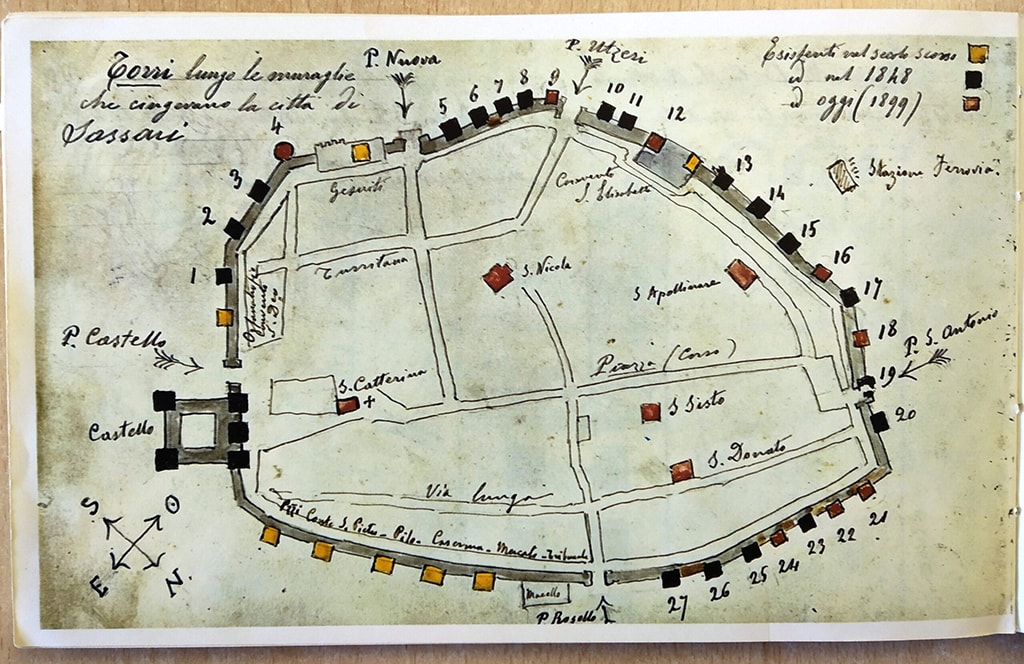 Torri lungo le muraglie
che cingevano la città di
Sassari
P. Nuova
P. Utzeri
Esistenti nel secolo scorso
id nel 1848
id oggi (1899)
Stazione Ferrovia
1
2
3
4
5
6
7
8
9
10
11
12
13
14
15
16
17
18
19
20
21
22
23
24
25
26
27
Gesuiti
Convento
S. Elisabetta
Turritana
S. Nicola
S Apollinare
Convento
S. Dio
P. Castello
Castello
S. Catterina
Piazza (Corso)
P. S. Antonio
S Sisto
S. Donato
Via lunga
Conte S. Pietro - Pila - Caserma - Macello - Tribunale
Macello
P. Rosello
S
O
E
N